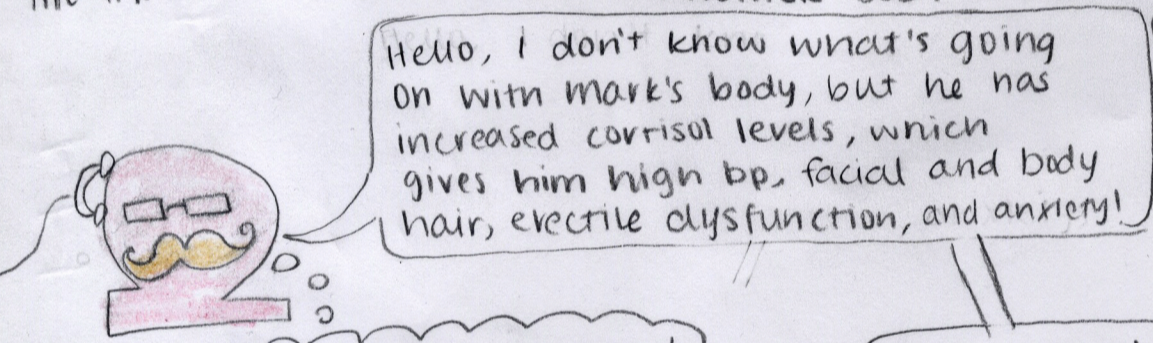 Hello, I don't know what's going
on with mark's body, but he has
increased corrisol levels, which
gives him high bp, facial and body
hair, erectile dysfunction, and anxiety!